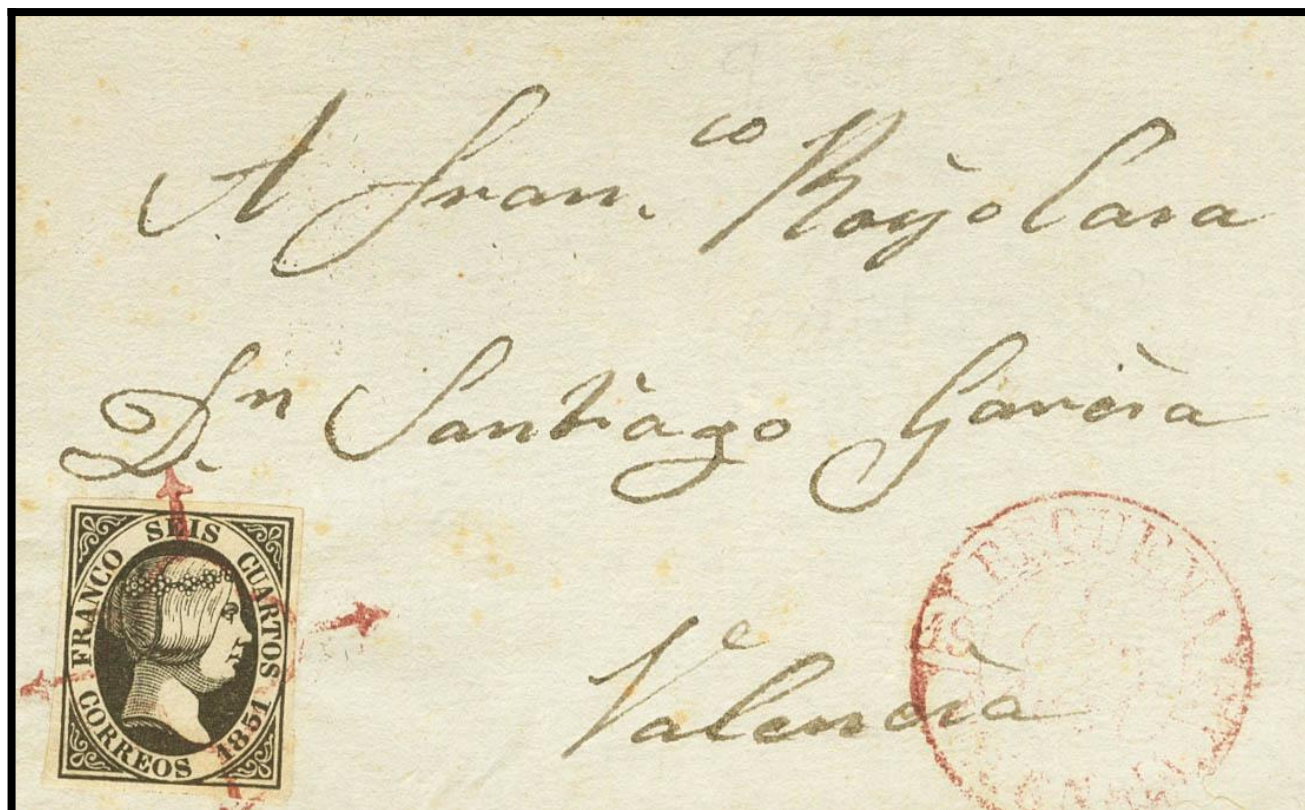 A Fran.co Royo Casa
Dn Santiago Garcia
Valencia
FRANCO SEIS CUARTOS
CORREOS 1851
REQUENA